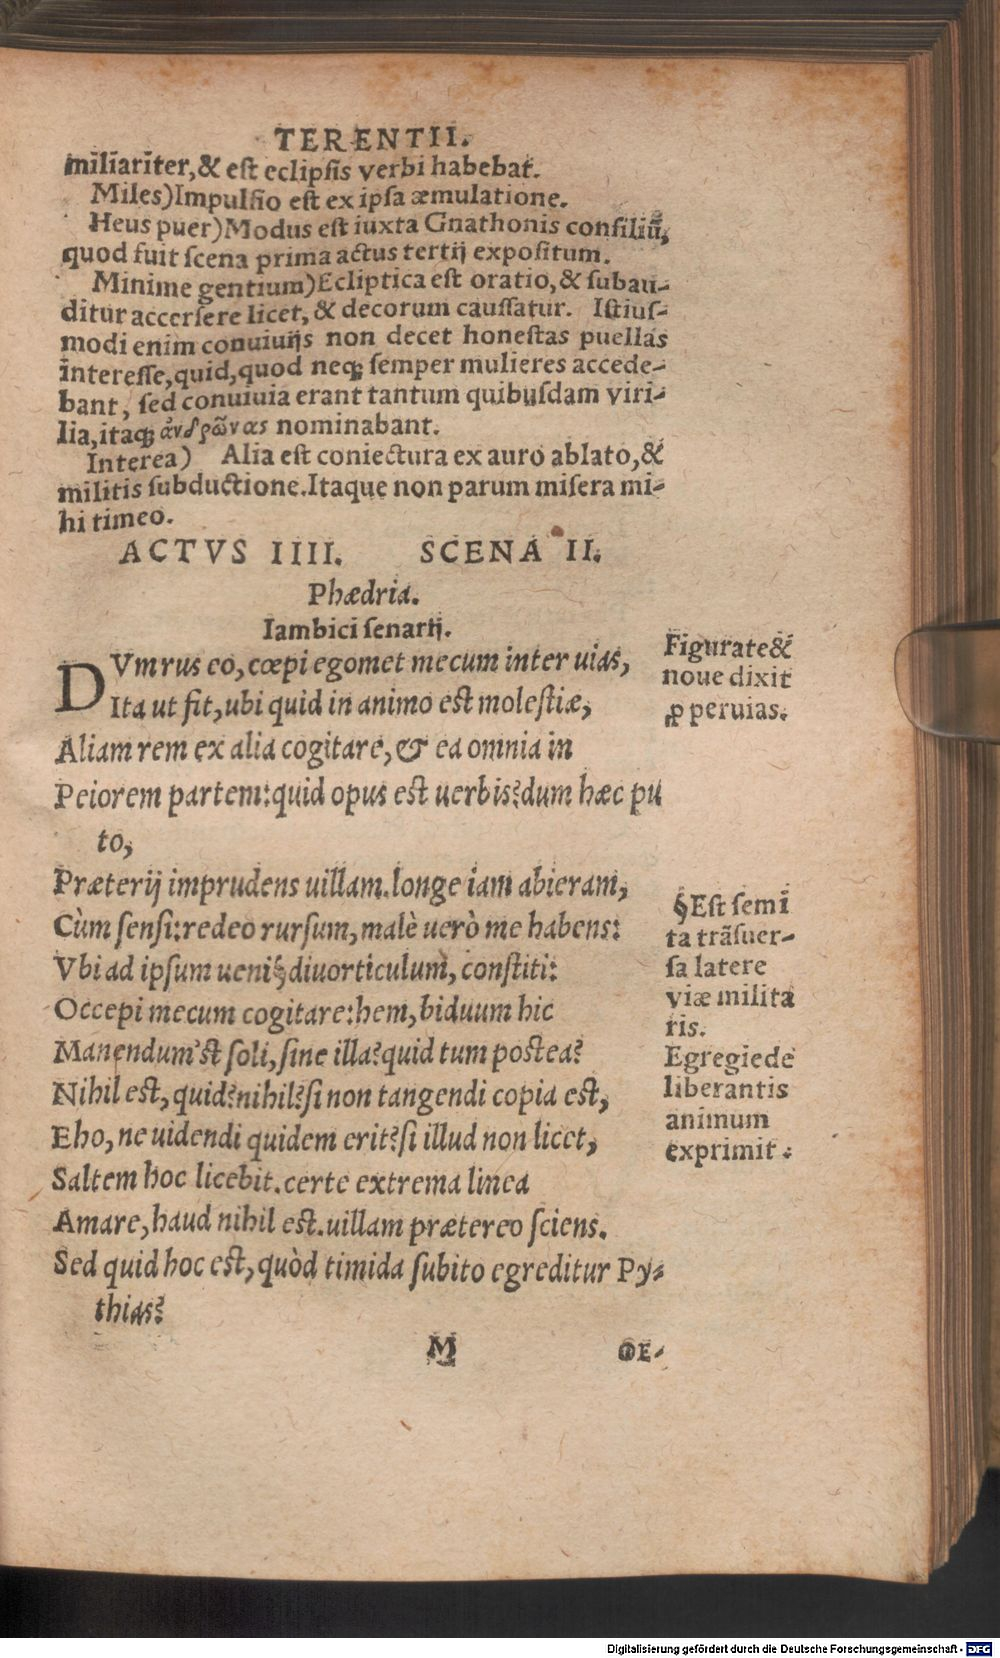 TERENTII.
miliariter,& est eclipsis verbi habebat.
Miles)Impulsio est ex ipsa æmulatione.
Heus puer)Modus est iuxta Gnathonis consiliũ,
quod fuit scena prima actus tertij expositum.
Minime gentium)Ecliptica est oratio,& subau-
ditur accersere licet,& decorum caussatur. Istius-
modi enim conuiuijs non decet honestas puellas
interesse,quid,quod neq; semper mulieres accede-
bant, sed conuiuia erant tantum quibusdam viri-
lia,itaq; ἀνδρῶνας nominabant.
Interea) Alia est coniectura ex auro ablato,&
militis subductione.Itaque non parum misera mi-
hi timeo.
ACTVS IIII. SCENA II.
Phædria.
Iambici senarij.
DVm rus eo, cœpi egomet mecum inter uias,
Ita ut fit,ubi quid in animo est molestiæ,
Aliam rem ex alia cogitare,& ea omnia in
Peiorem partem:quid opus est uerbis?dum hæc pu
to,
Præterij imprudens uillam.longe iam abieram,
Cùm sensi:redeo rursum,malè uerò me habens:
Vbi ad ipsum ueni§diuorticulum, constiti:
Occepi mecum cogitare:hem,biduum hic
Manendum'st soli,sine illa?quid tum postea?
Nihil est,quid?nihil?si non tangendi copia est,
Eho, ne uidendi quidem erit?si illud non licet,
Saltem hoc licebit.certe extrema linea
Amare,haud nihil est.uillam prætereo sciens.
Sed quid hoc est,quòd timida subito egreditur Py-
thias?
Figurate&
noue dixit
ꝓ peruias.
§Est semi
ta trãsuer-
sa latere
viæ milita
ris.
Egregiede
liberantis
animum
exprimit.
M
OE-
Digitalisierung gefördert durch die Deutsche Forschungsgemeinschaft - DFG